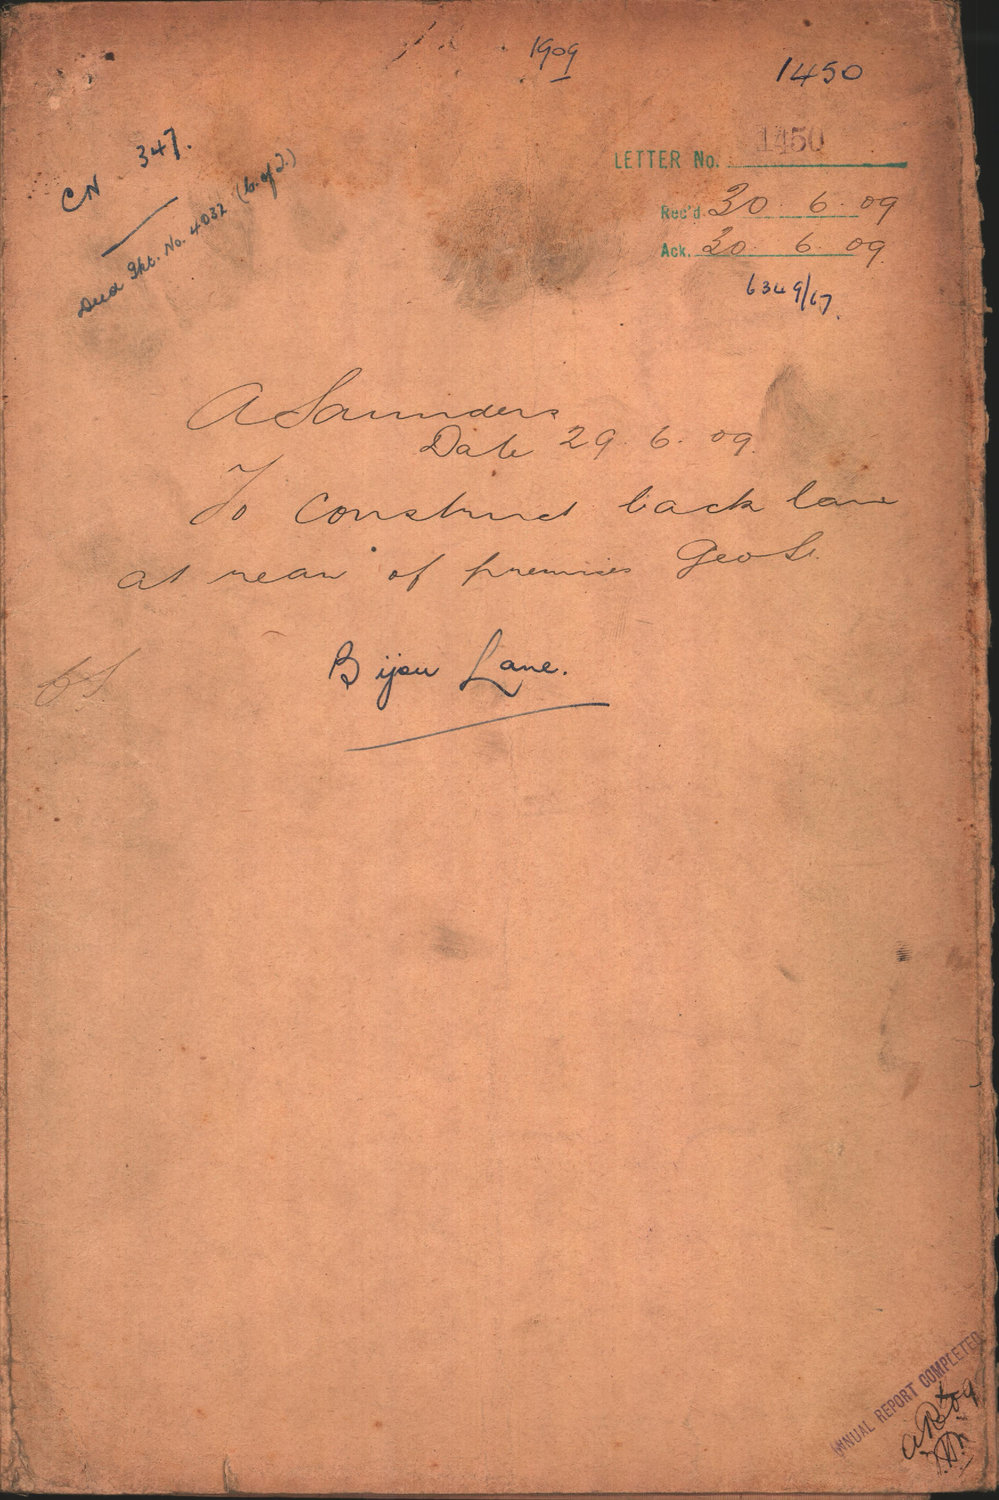 1909
1450
CN 347.
Deed Pkt. No. 4032 (B. of L.)
LETTER No. 1450
Rec'd. 30. 6. 09
Ack. 30. 6. 09
6349/67.
A Saunders
Date 29. 6. 09.
To Construct back lane
at rear of premises Geo St.
Bijou Lane.
ANNUAL REPORT COMPLETED